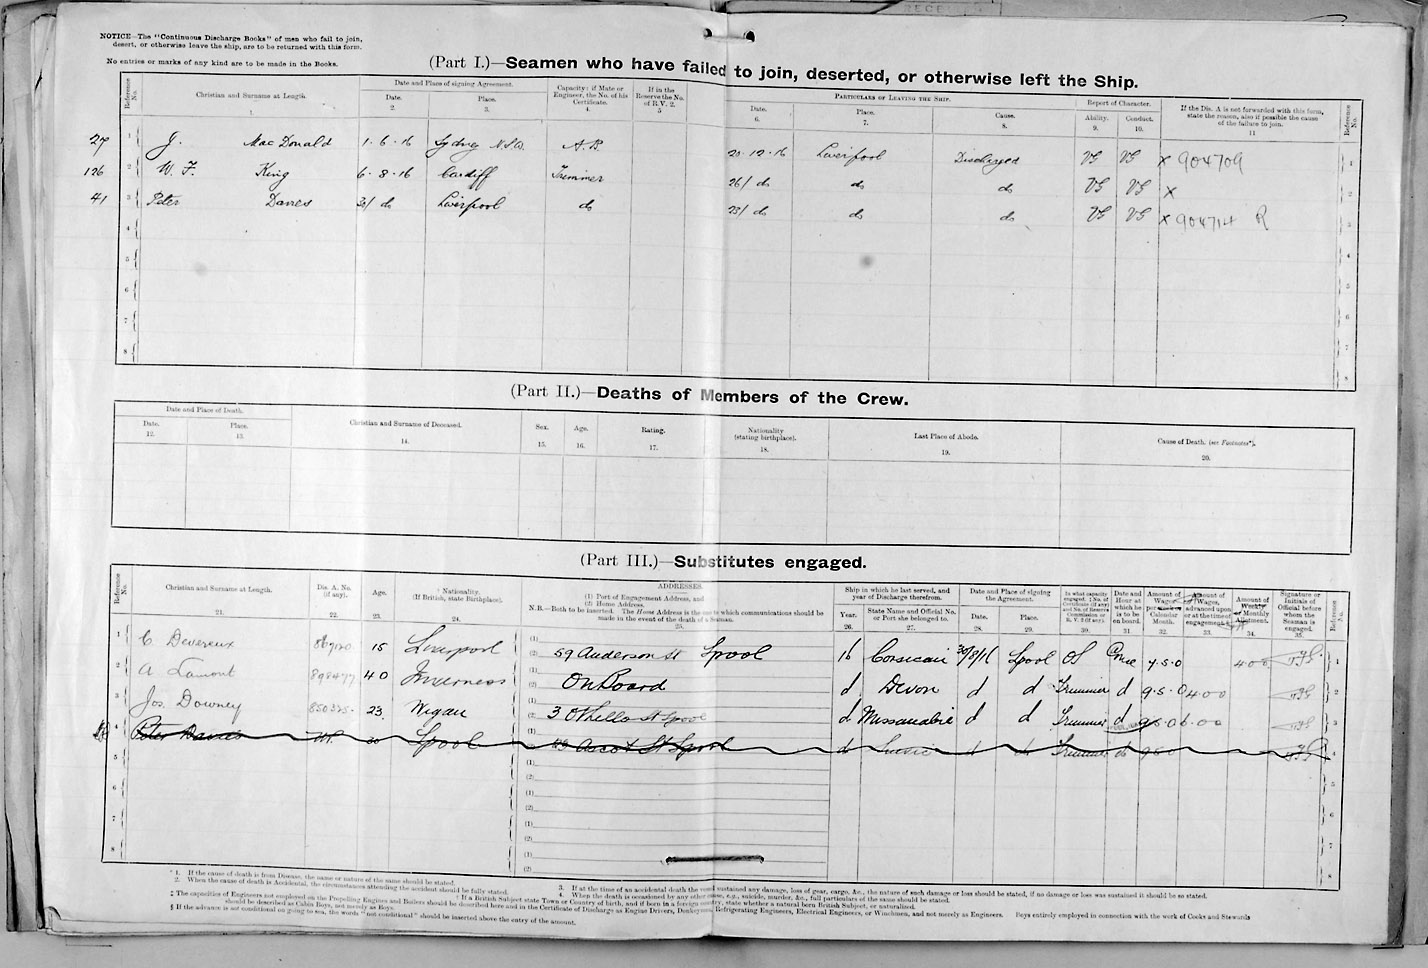 RECEI
NOTICE—The "Continuous Discharge Books" of men who fail to join,
desert, or otherwise leave the ship, are to be returned with this form.
No entries or marks of any kind are to be made in the Books.
(Part I.)—Seamen who have failed to join, deserted, or otherwise left the Ship.
Reference No. Christian and Surname at Length. 1. Date and Place of signing Agreement. Date. 2. Place. 3. Capacity: if Mate or Engineer, the No. of his Certificate. 4. If in the Reserve the No. of R.V. 2. 5 Particulars of Leaving the Ship. Date. 6. Place. 7. Cause. 8. Report of Character. Ability. 9. Conduct. 10. If the Dis. A is not forwarded with this form, state the reason, also if possible the cause of the failure to join. 11 Reference No.
27 1 J. MacDonald 1·6·16 Sydney N.S.W. A.B. 20·12·16 Liverpool Discharged VG VG x 904709 1
126 2 W. F. King 6·8·16 Cardiff Trimmer 26/ do do do VG VG x 2
41 3 Peter Davies 31/ do Liverpool do 23/ do do do VG VG x 904714 R 3
4 4
5 5
6 6
7 7
8 8
(Part II.)—Deaths of Members of the Crew.
Date and Place of Death. Date. 12. Place. 13. Christian and Surname of Deceased. 14. Sex. 15. Age. 16. Rating. 17. Nationality (stating birthplace). 18. Last Place of Abode. 19. Cause of Death. (see Footnotes*). 20.
(Part III.)—Substitutes engaged.
Reference No. Christian and Surname at Length. 21. Dis. A. No. (if any). 22. Age. 23. Nationality. (If British, state Birthplace). 24. ADDRESSES. (1) Port of Engagement Address, and (2) Home Address. N.B.—Both to be inserted. The Home Address is the one to which communications should be made in the event of the death of a Seaman. 25. Ship in which he last served, and year of Discharge therefrom. Year. 26. State Name and Official No. or Port she belonged to. 27. Date and Place of signing the Agreement. Date. 28. Place. 29. In what capacity engaged. 30. Date and Hour at which he is to be on board. 31 Amount of Wages per Calendar Month. 32. Amount of Wages advanced upon or at the time of engagement. 33. Amount of Monthly Allotment. 34. Signature or Initials of Official before whom the Seaman is engaged. 35. Reference No.
1 C. Devereux 15 Liverpool (1) 59 Anderson St Lpool 16 Corsican 30/8/16 Lpool OS Once 4·5·0 4 0 0 1
2 A Lamont 40 Inverness (2) On Board d Devon d d Trimmer d 9·5·0 4·0·0 2
3 Jos. Downey 850325 23 Wigan 3 Othello St Lpool d Missanabie d d Trimmer d 9·5·0 6·0·0 3
4 Peter Davies 30 Lpool 49 Ascot St Lpool do d d Trimmer do 9·5·0 4
5 (1) (2) 5
6 (1) (2) 6
7 (1) (2) 7
8 (1) (2) 8
* 1. If the cause of death is from Disease, the name or nature of the same should be stated.
2. When the cause of death is Accidental, the circumstances attending the accident should be fully stated.
3. If at the time of an accidental death the vessel sustained any damage, loss of gear, cargo, &c., the nature of such damage or loss should be stated, if no damage or loss was sustained it should be so stated.
4. When the death is occasioned by any other cause, e.g., suicide, murder, &c., full particulars of the same should be stated.
† If a British Subject state Town or Country of birth, and if born in a foreign country, state whether a natural born British Subject, or naturalised.
‡ The capacities of Engineers not employed on the Propelling Engines and Boilers should be described here and in the Certificate of Discharge as Engine Drivers, Donkeymen, Refrigerating Engineers, Electrical Engineers, or Winchmen, and not merely as Engineers. Boys entirely employed in connection with the work of Cooks and Stewards
should be described as Cabin Boys, not merely as Boys.
§ If the advance is not conditional on going to sea, the words "not conditional" should be inserted above the entry of the amount.